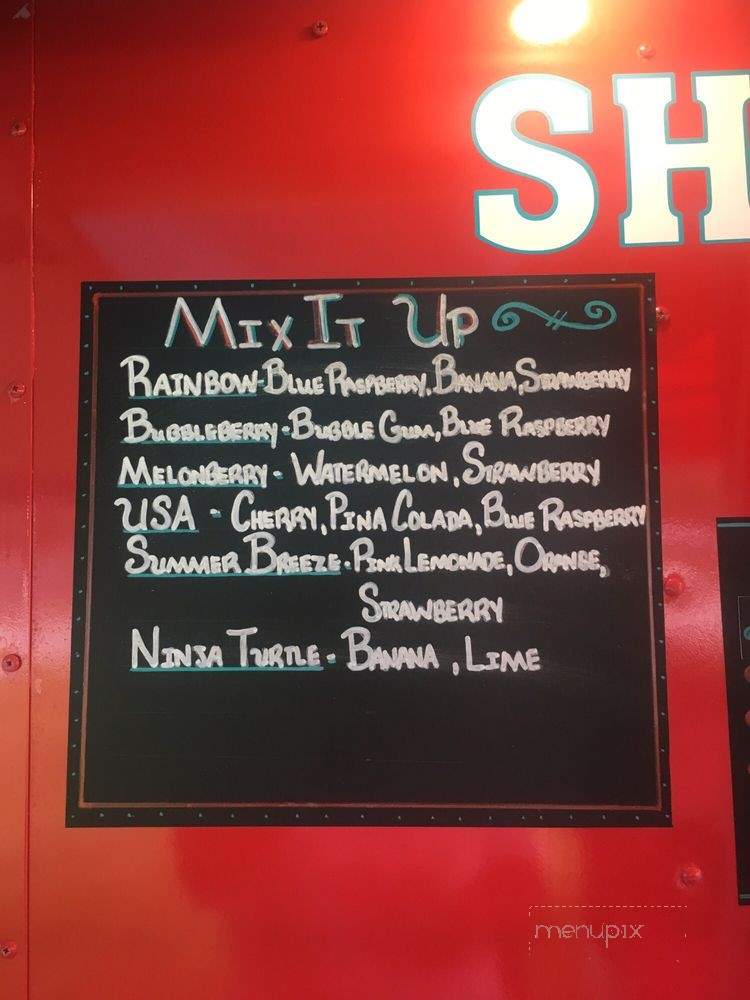 SH
Mix It Up
Rainbow - Blue Raspberry, Banana, Strawberry
Bubbleberry - Bubble Gum, Blue Raspberry
Melonberry - Watermelon, Strawberry
USA - Cherry, Pina Colada, Blue Raspberry
Summer Breeze - Pink Lemonade, Orange,
Strawberry
Ninja Turtle - Banana, Lime
menupix